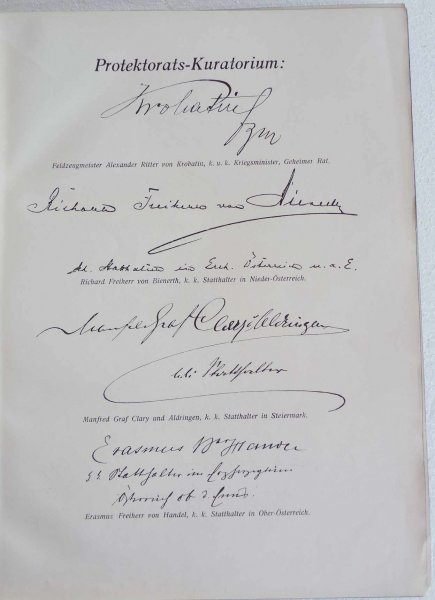 Protektorats-Kuratorium:
Krobatin
FZM
Feldzeugmeister Alexander Ritter von Krobatin, k. u. k. Kriegsminister, Geheimer Rat.
Richard Freiherr von Bienerth
kk. Statthalter im Erzh. Österreich u. d. E.
Richard Freiherr von Bienerth, k. k. Statthalter in Nieder-Österreich.
Manfred Graf Clary Aldringen
kk Statthalter
Manfred Graf Clary und Aldringen, k. k. Statthalter in Steiermark.
Erasmus Frh Handel
kk Statthalter im Erzherzogtum
Österreich ob d Enns.
Erasmus Freiherr von Handel, k. k. Statthalter in Ober-Österreich.